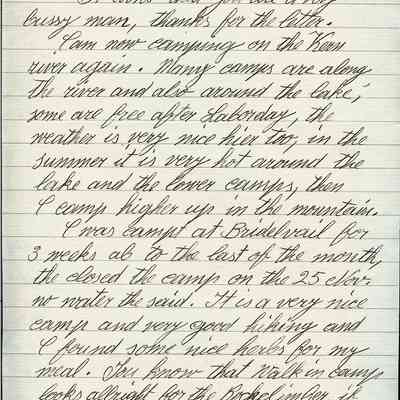 It looks like you are a very
bussy man, thanks for the letter.
I am now camping on the Kern
river again. Many camps are along
the river and also around the lake;
some are free after Laborday, the
weather is very nice hier too, in the
summer it is very hot around the
lake and the lower camps, then
I camp higher up in the mountain.
I was campt at Bridelvail for
3 weeks ab to the last of the month,
the closed the camp on the 25 Nov.
no water the said. It is a very nice
camp and very good hiking and
I found some nice herbs for my
meal. You know that walk in camp
looks allright for the Rockclimber, it